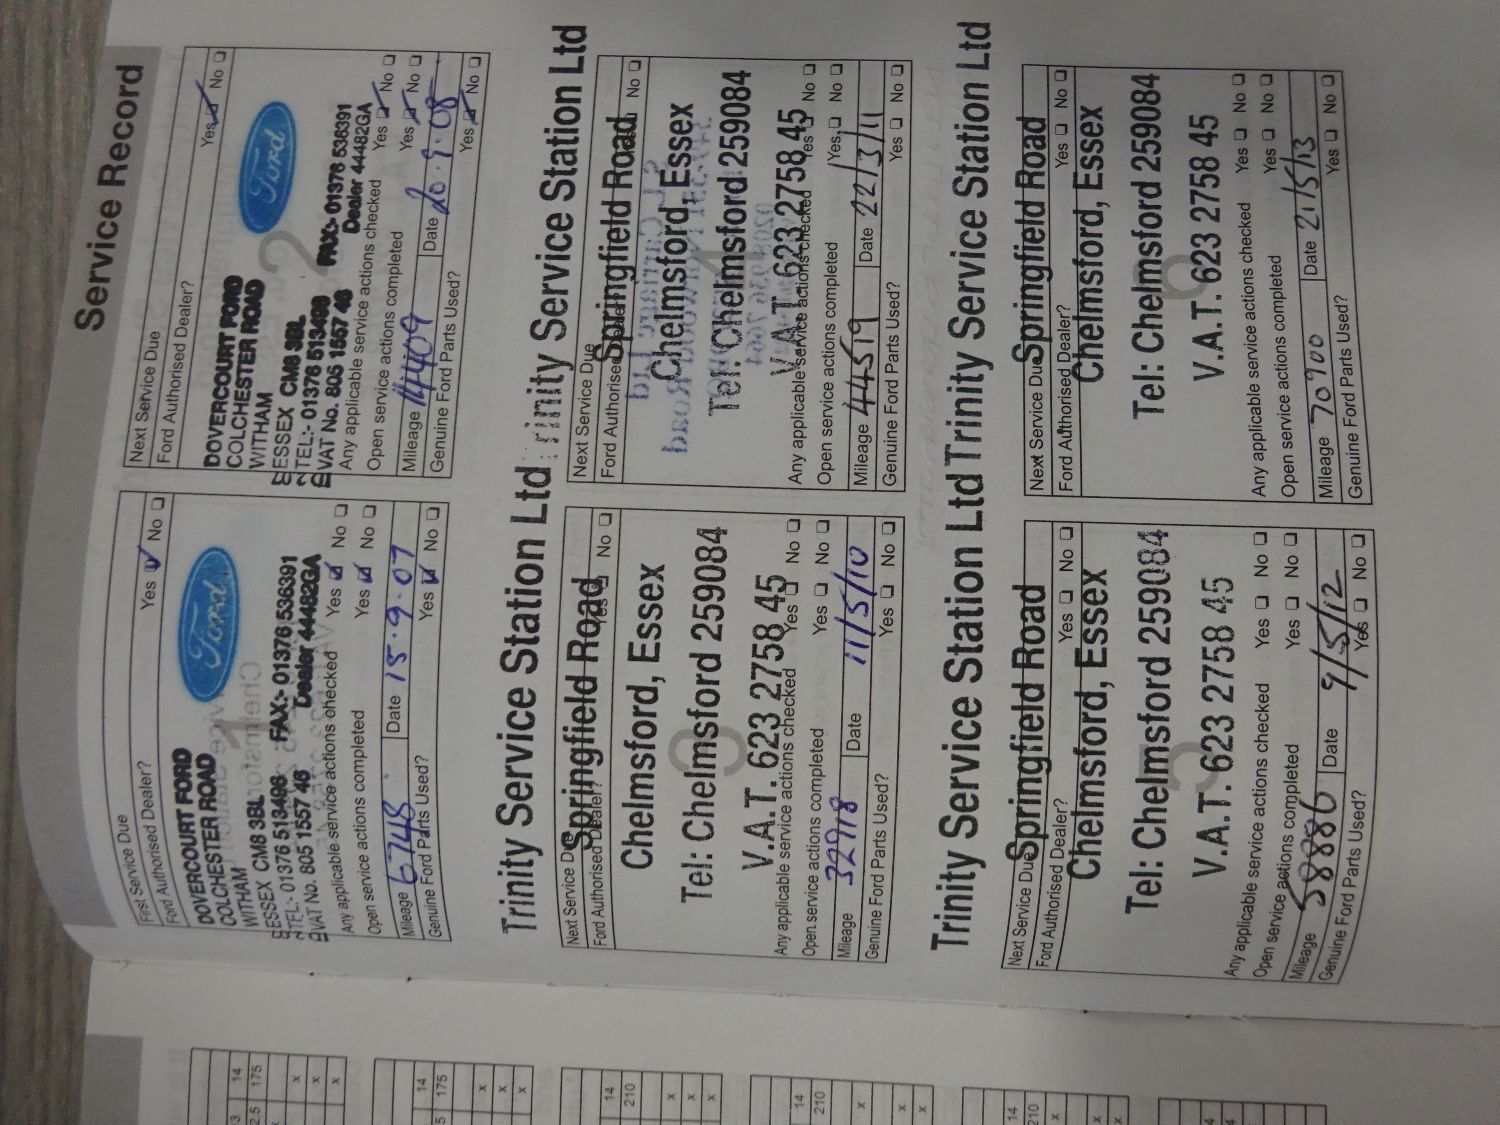 Service Record
First Service Due
Ford Authorised Dealer? Yes ☑ No ☐
DOVERCOURT FORD
COLCHESTER ROAD
WITHAM
ESSEX CM8 3BL
TEL:- 01376 513496 FAX:- 01376 536391
VAT No. 805 1557 46 Dealer 44482GA
Ford
1
Any applicable service actions checked Yes ☑ No ☐
Open service actions completed Yes ☑ No ☐
Mileage 6748 Date 15.9.07
Genuine Ford Parts Used? Yes ☑ No ☐
Next Service Due
Ford Authorised Dealer? Yes ☑ No ☐
DOVERCOURT FORD
COLCHESTER ROAD
WITHAM
ESSEX CM8 3BL
TEL:- 01376 513496 FAX:- 01376 536391
VAT No. 805 1557 46 Dealer 44482GA
Ford
2
Any applicable service actions checked Yes ☑ No ☐
Open service actions completed Yes ☑ No ☐
Mileage 14409 Date 20.9.08
Genuine Ford Parts Used? Yes ☑ No ☐
Trinity Service Station Ltd
Next Service Due
Springfield Road
Ford Authorised Dealer? Yes ☐ No ☐
Chelmsford, Essex
3
Tel: Chelmsford 259084
V.A.T. 623 2758 45
Any applicable service actions checked Yes ☐ No ☐
Open service actions completed Yes ☐ No ☐
Mileage 32918 Date 11/5/10
Genuine Ford Parts Used? Yes ☐ No ☐
Trinity Service Station Ltd
Next Service Due
Springfield Road
Ford Authorised No ☐
Chelmsford, Essex
Tel: Chelmsford 259084
V.A.T. 623 2758 45
Any applicable service actions checked Yes ☐ No ☐
Open service actions completed Yes ☐ No ☐
Mileage 44519 Date 22/3/11
Genuine Ford Parts Used? Yes ☐ No ☐
Trinity Service Station Ltd
Next Service Due
Springfield Road
Ford Authorised Dealer? Yes ☐ No ☐
Chelmsford, Essex
5
Tel: Chelmsford 259084
V.A.T. 623 2758 45
Any applicable service actions checked Yes ☐ No ☐
Open service actions completed Yes ☐ No ☐
Mileage 58886 Date 9/5/12
Genuine Ford Parts Used? Yes ☐ No ☐
Trinity Service Station Ltd
Next Service Due
Springfield Road
Ford Authorised Dealer? Yes ☐ No ☐
Chelmsford, Essex
6
Tel: Chelmsford 259084
V.A.T. 623 2758 45
Any applicable service actions checked Yes ☐ No ☐
Open service actions completed Yes ☐ No ☐
Mileage 70900 Date 21/5/13
Genuine Ford Parts Used? Yes ☐ No ☐
14
175
14
175
14
210
14
210
14